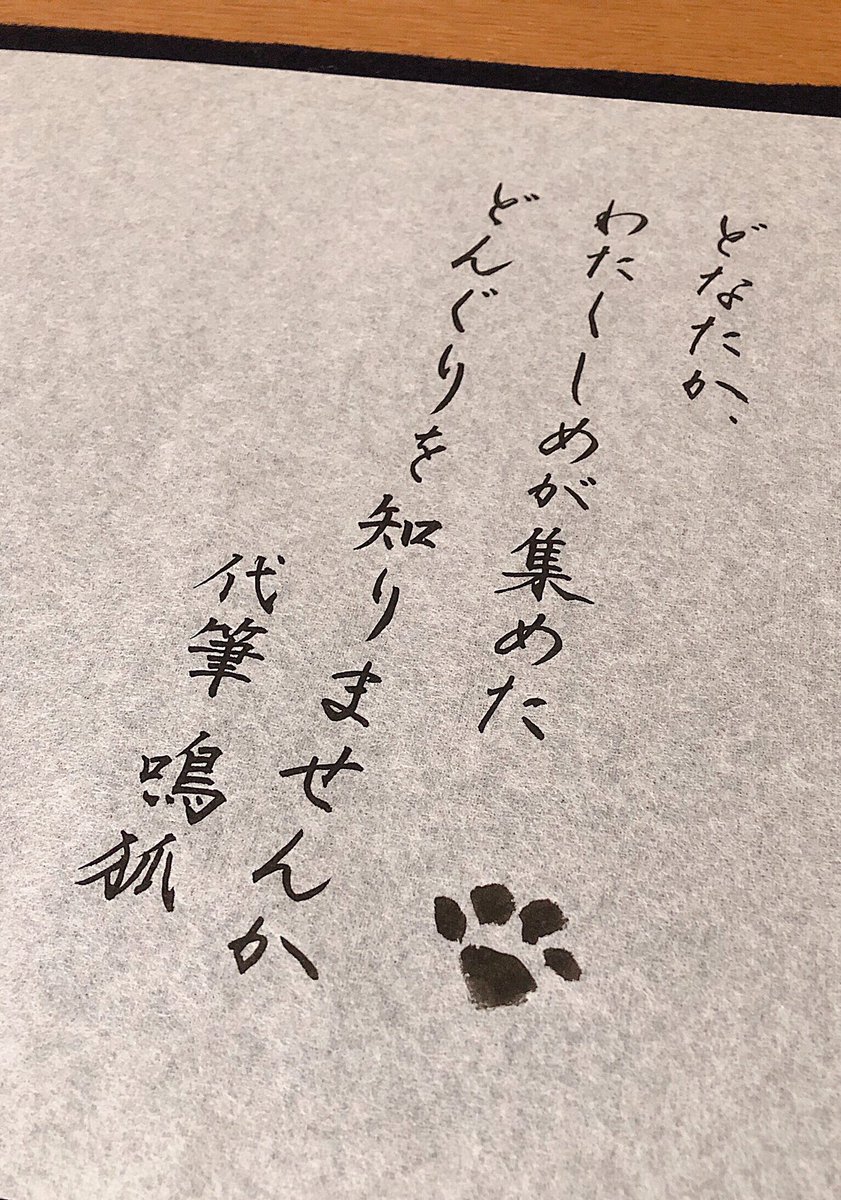 どなたか、
わたくしめが集めた
どんぐりを知りませんか
代筆 鳴狐